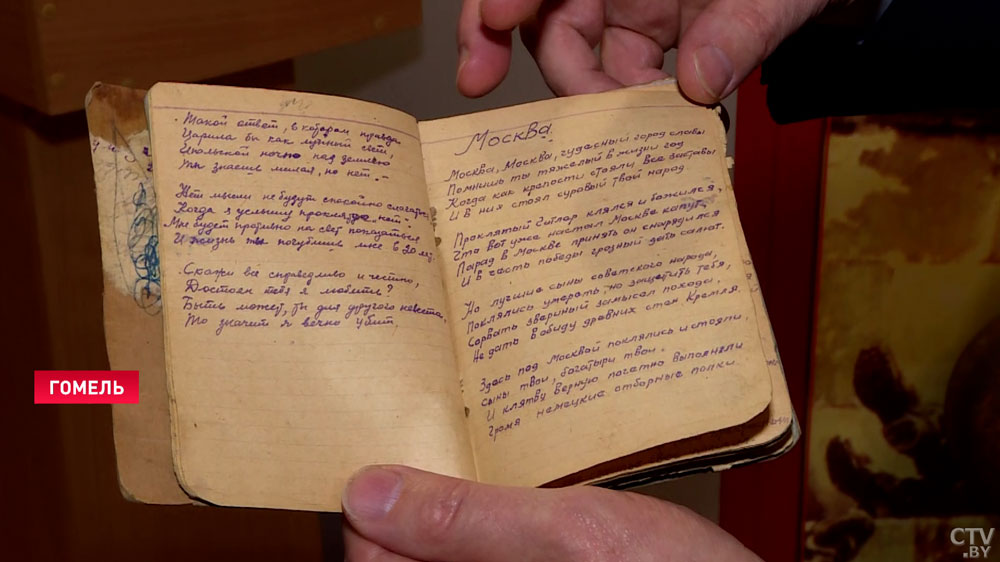 Такой ответ, в котором правда
Царила бы как лунный свет,
Июльской ночью над землею
Ты знаешь милая, но нет.-
Нет мысли не будут спокойно
Когда я услышу проклятое нет-
Мне будет противно на свет показаться
И жизнь ты погубишь мне в 20 л
Скажи все справедливо и честно,
Достоен тебя я любить?
Быть может, ты для другого невеста,
То значит я вечно убит.
Москва.
Москва, Москва, чудесный город славы
Помнишь ты тяжелый в жизни год
Когда как крепости стояли все заставы
И в них стоял суровый твой народ.
Проклятый Гитлер клялся и божился,
Что вот уже настал Москве капут,
Парад в Москве принять он снарядился
И в честь победы грозный дать салют.
Но лучшие сыны советского народа,
Поклялись умереть, но защитить тебя,
Сорвать звериный замысел похода,
Не дать в обиду древних стен Кремля.
Здесь под Москвой поклялись и стояли,
Сыны твои, богатыри твои.
И клятву верную почетно выполняли
Громя немецкие отборные полки.
ГОМЕЛЬ
CTV
.BY